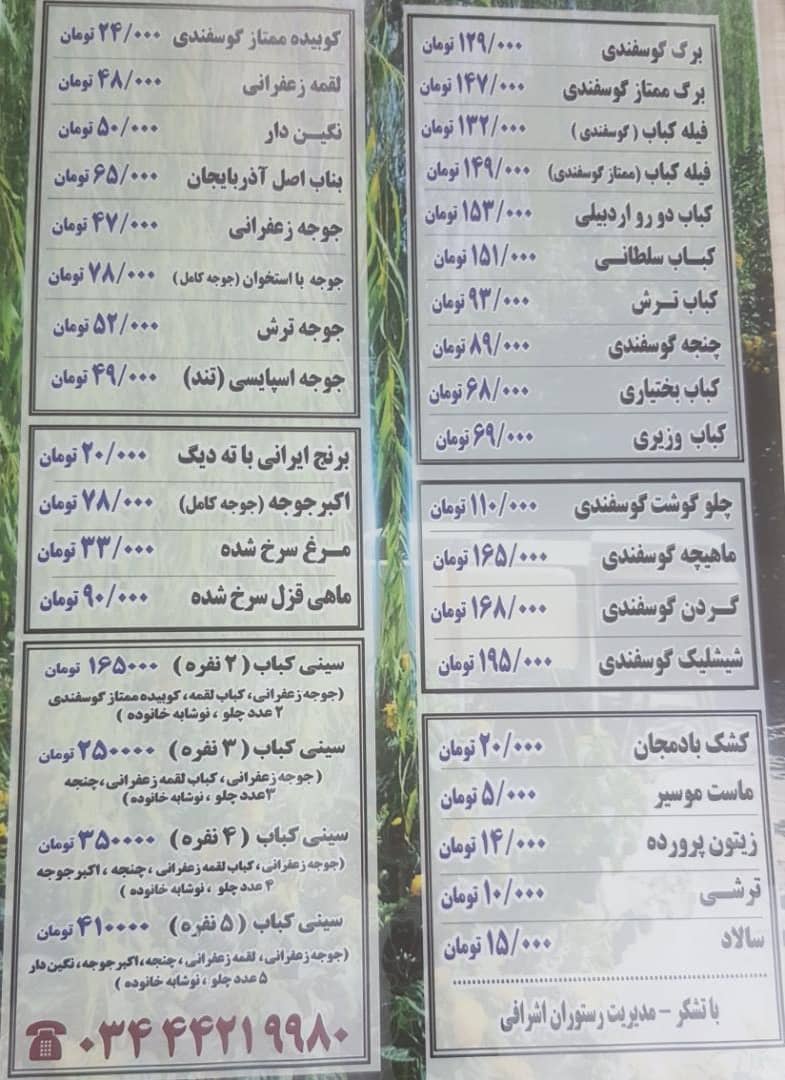 برگ گوسفندی ۱۲۹/۰۰۰ تومان
برگ ممتاز گوسفندی ۱۴۷/۰۰۰ تومان
فیله کباب (گوسفندی) ۱۳۲/۰۰۰ تومان
فیله کباب (ممتاز گوسفندی) ۱۴۹/۰۰۰ تومان
کباب دو رو اردبیلی ۱۵۳/۰۰۰ تومان
کباب سلطانی ۱۵۱/۰۰۰ تومان
کباب ترش ۹۳/۰۰۰ تومان
چنجه گوسفندی ۸۹/۰۰۰ تومان
کباب بختیاری ۶۸/۰۰۰ تومان
کباب وزیری ۶۹/۰۰۰ تومان
چلو گوشت گوسفندی ۱۱۰/۰۰۰ تومان
ماهیچه گوسفندی ۱۶۵/۰۰۰ تومان
گردن گوسفندی ۱۶۸/۰۰۰ تومان
شیشلیک گوسفندی ۱۹۵/۰۰۰ تومان
کشک بادمجان ۲۰/۰۰۰ تومان
ماست موسیر ۵/۰۰۰ تومان
زیتون پرورده ۱۴/۰۰۰ تومان
ترشی ۱۰/۰۰۰ تومان
سالاد ۱۵/۰۰۰ تومان
با تشکر - مدیریت رستوران اشرافی
کوبیده ممتاز گوسفندی ۲۴/۰۰۰ تومان
لقمه زعفرانی ۴۸/۰۰۰ تومان
نگین دار ۵۰/۰۰۰ تومان
بناب اصل آذربایجان ۶۵/۰۰۰ تومان
جوجه زعفرانی ۴۷/۰۰۰ تومان
جوجه با استخوان (جوجه کامل) ۷۸/۰۰۰ تومان
جوجه ترش ۵۲/۰۰۰ تومان
جوجه اسپایسی (تند) ۴۹/۰۰۰ تومان
برنج ایرانی با ته دیگ ۲۰/۰۰۰ تومان
اکبر جوجه (جوجه کامل) ۷۸/۰۰۰ تومان
مرغ سرخ شده ۳۳/۰۰۰ تومان
ماهی قزل سرخ شده ۹۰/۰۰۰ تومان
سینی کباب (۲ نفره) ۱۶۵۰۰۰ تومان
(جوجه زعفرانی، کباب لقمه، کوبیده ممتاز گوسفندی
۲ عدد چلو، نوشابه خانوده)
سینی کباب (۳ نفره) ۲۵۰۰۰۰ تومان
(جوجه زعفرانی، کباب لقمه زعفرانی، چنجه
۳عدد چلو، نوشابه خانوده)
سینی کباب (۴ نفره) ۳۵۰۰۰۰ تومان
(جوجه زعفرانی، کباب لقمه زعفرانی، چنجه، اکبرجوجه
۴ عدد چلو، نوشابه خانوده)
سینی کباب (۵ نفره) ۴۱۰۰۰۰ تومان
(جوجه زعفرانی، لقمه زعفرانی، چنجه، اکبرجوجه، نگین دار
۵ عدد چلو، نوشابه خانوده)
۰۳۴ ۴۴۲۱ ۹۹۸۰